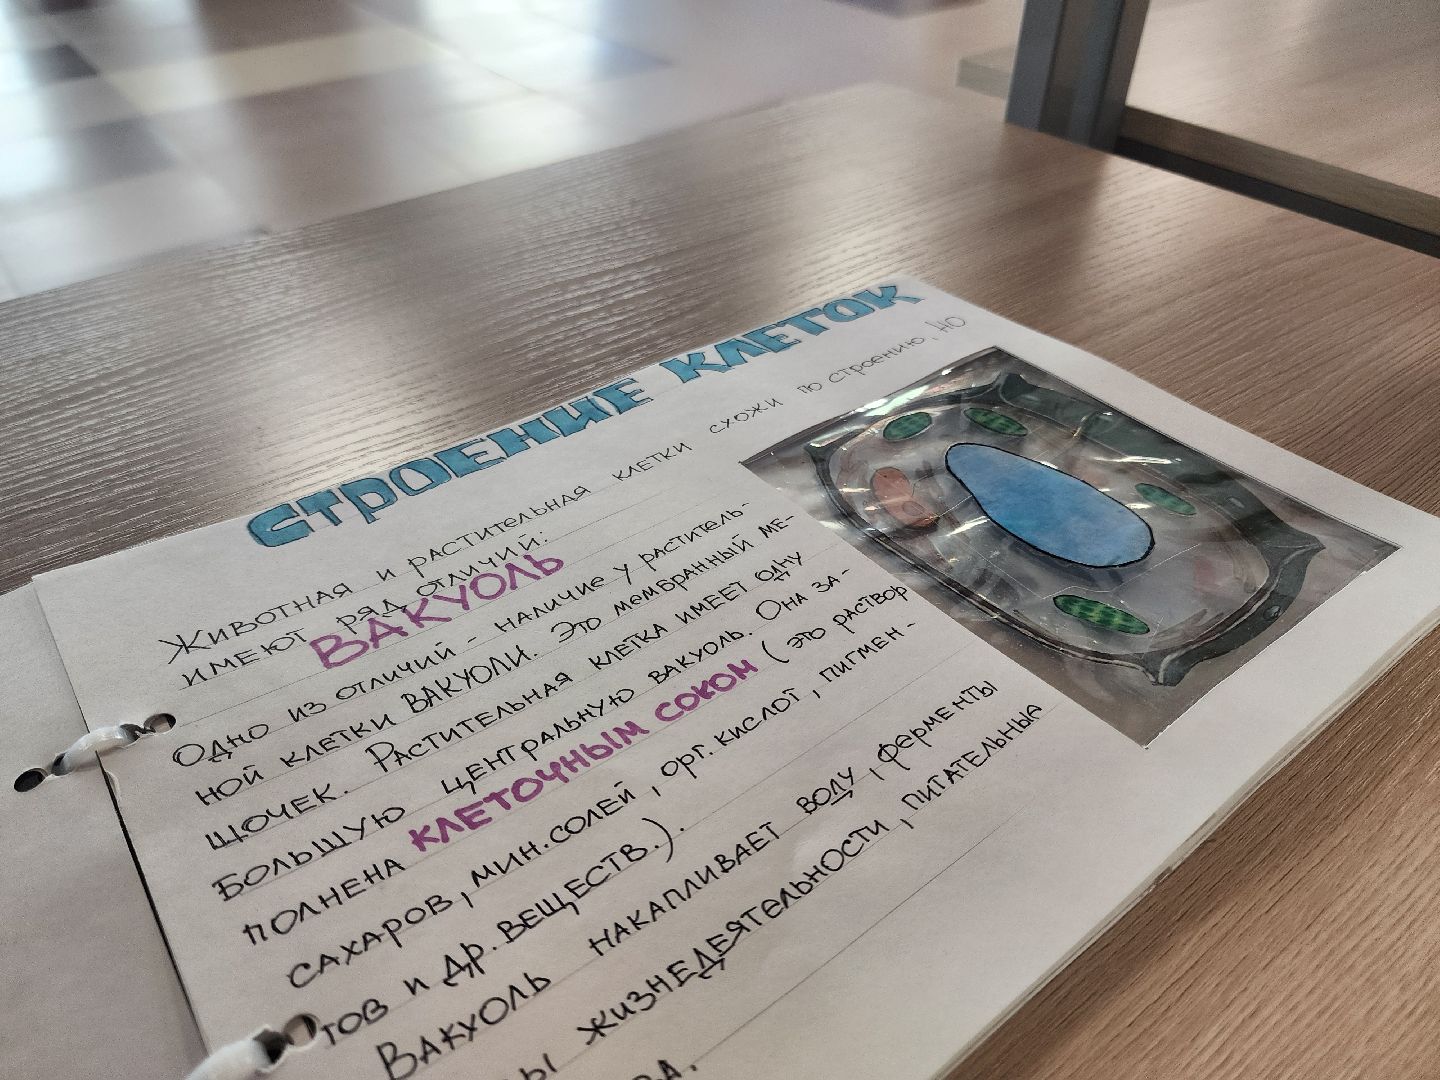 СТРОЕНИЕ КЛЕТОК
Животная и растительная клетки схожи по строению, но
имеют ряд отличий:
ВАКУОЛЬ
Одно из отличий - наличие у раститель-
ной клетки вакуоли. Это мембранный ме-
щочек. Растительная клетка имеет одну
большую центральную вакуоль. Она за-
полнена клеточным соком (это раствор
сахаров, мин. солей, орг. кислот, пигмен-
тов и др. веществ.).
Вакуоль накапливает воду, ферменты
жизнедеятельности, питательныя